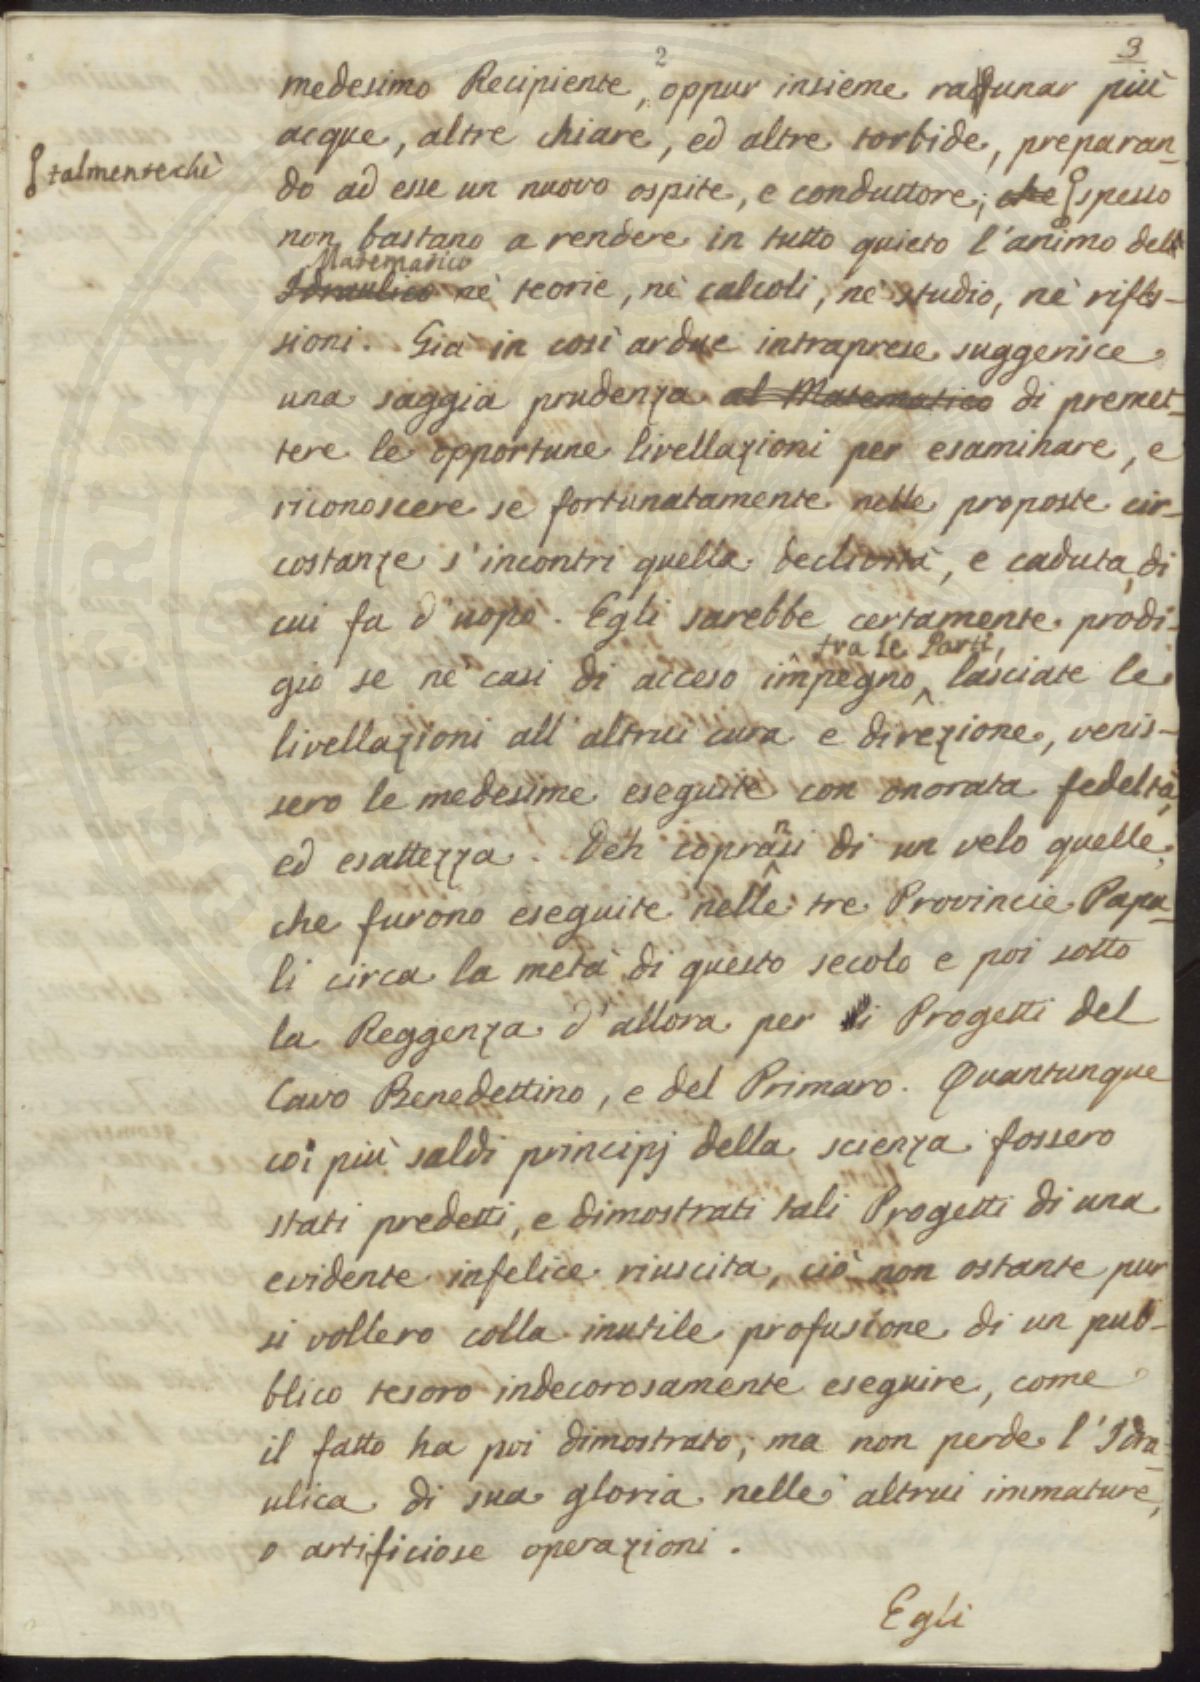 2
3
medesimo Recipiente, oppur insieme radunar più
acque, altre chiare, ed altre torbide, preparan-
talmentechè
do ad esse un nuovo ospite, e conduttore; che spesso
non bastano a rendere in tutto quieto l'animo del
Matematico
Idraulico nè teorie, nè calcoli, nè studio, nè rifles-
sioni. Già in così ardue intraprese suggerisce
una saggia prudenza al Matematico di premet-
tere le opportune livellazioni per esaminare, e
riconoscere se fortunatamente nelle proposte cir-
costanze s'incontri quella declività, e caduta, di
cui fa d'uopo. Egli sarebbe certamente prodi-
tra le Parti,
gio se ne' casi di acceso impegno lasciate le
livellazioni all'altrui cura e direzione, venis-
sero le medesime eseguite con onorata fedeltà,
ed esattezza. Deh copransi di un velo quelle,
che furono eseguite nelle tre Provincie Papa-
li circa la metà di questo secolo e poi sotto
la Reggenza d'allora per i Progetti del
Cavo Benedettino, e del Primaro. Quantunque
coi più saldi principj della scienza fossero
stati predetti, e dimostrati tali Progetti di una
evidente infelice riuscita, ciò non ostante pur
si vollero colla inutile profusione di un pub-
blico tesoro indecorosamente eseguire, come
il fatto ha poi dimostrato; ma non perde l'Idra-
ulica di sua gloria nelle altrui immature,
o artificiose operazioni.
Egli